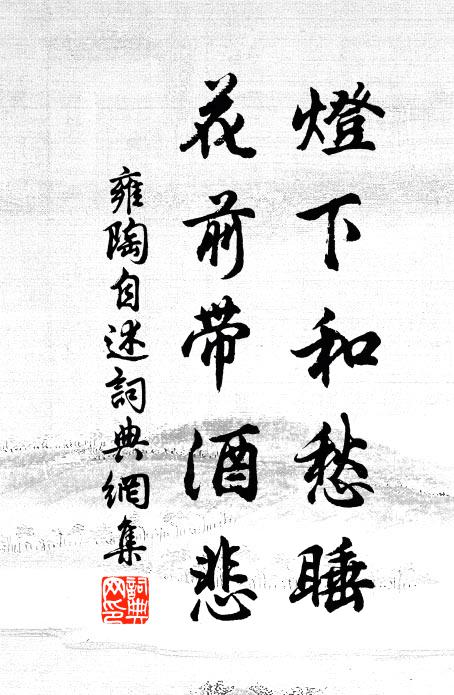 燈下和愁睡
花前帶酒悲
雍陶自述詞典網集
詞典網印